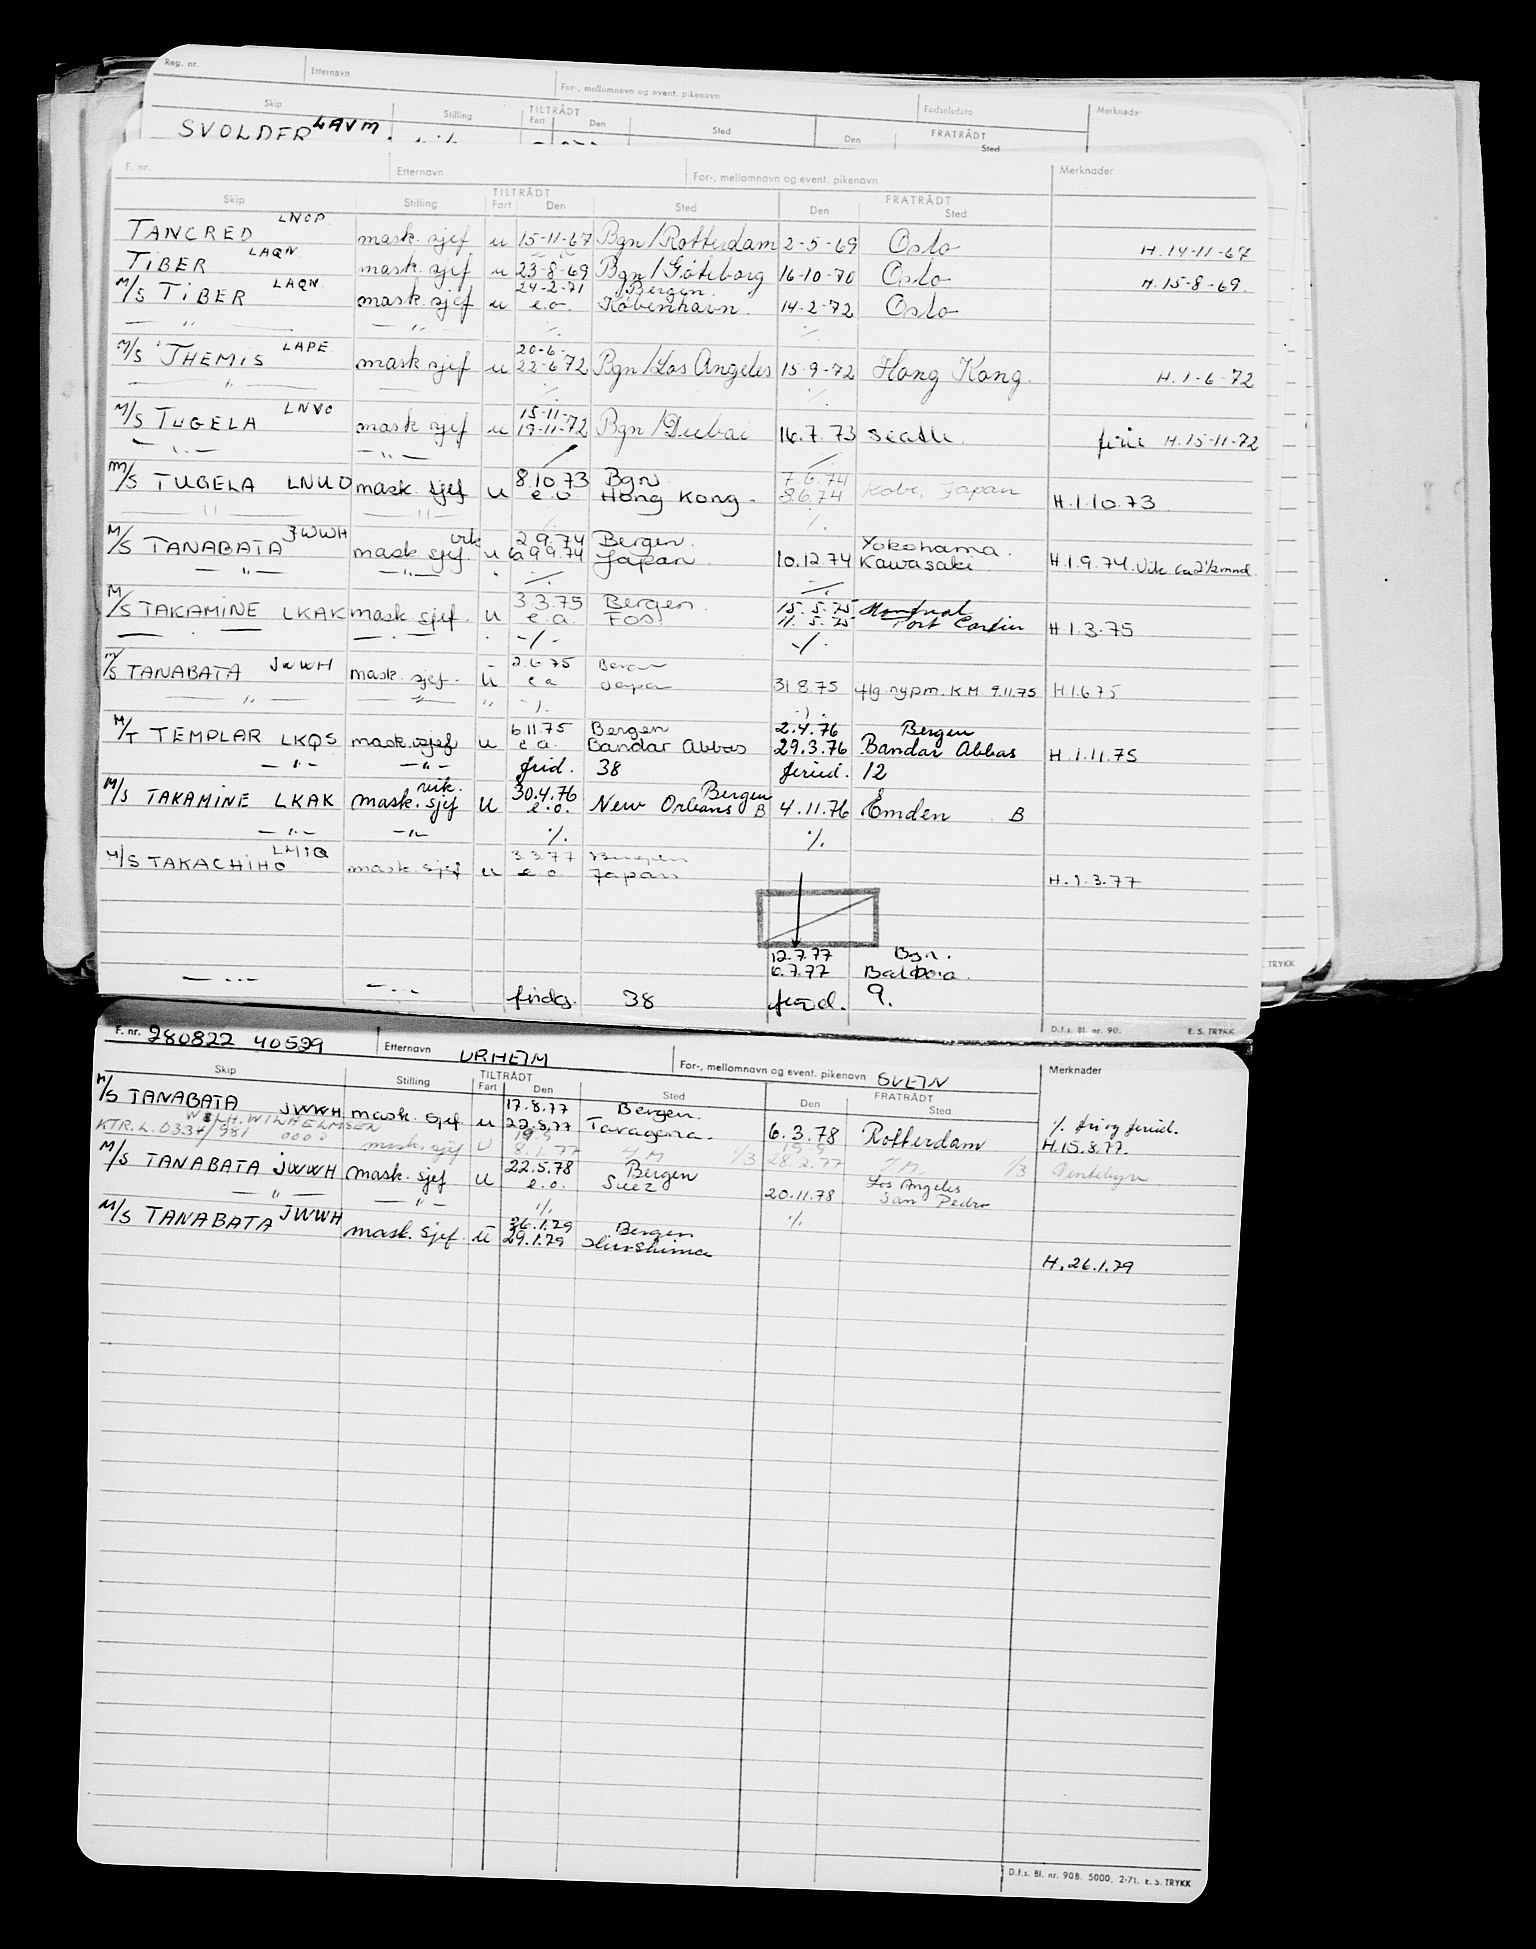 Reg. nr. Etternavn For-, mellomnavn og event. pikenavn Fødselsdato Merknader
Skip Stilling TILTRÅDT Fart Den Sted Den FRATRÅDT Sted
SVOLDER LAVM.
F. nr. Etternavn For-, mellomnavn og event. pikenavn Merknader
Skip Stilling TILTRÅDT Fart Den Sted Den FRATRÅDT Sted
TANCRED LNOP mask. sjef u 15-11-67 Bgn/Rotterdam 2-5-69 Oslo H. 14-11-67
TIBER LAQN mask. sjef u 23-8-69 Bgn/Göteborg 16-10-70 Oslo H. 15-8-69.
24-2-71 Bergen.
M/S TIBER LAQN mask sjef u e.o. København. 14-2-72 Oslo
— " — — " — ·/. ·/.
20-6-
M/S THEMIS LAPE mask sjef u 22-6-72 Bgn/Los Angeles 15-9-72 Hong Kong. H. 1-6-72
— " — ·/. ·/.
15-11-
M/S TUGELA LNVO mask sjef u 19-11-72 Bgn/Dubai 16.7.73 Seattle. ferie H. 15-11-72
— " — — " — ·/. ·/.
8.10.73 Bgn 7.6.74
M/S TUGELA LNUO mask. sjef u e o Hong Kong. 8.6.74 Kobe, Japan H.1.10.73
— " — — " — ·/. ·/.
vik 2.9.74 Bergen. Yokohama.
M/S TANABATA JWWH mask sjef. u ca 9.9.74 Japan. 10.12.74 Kawasaki H.1.9.74. Vik ca 2 1/2 mnd.
— " — — " — ·/. ·/.
3.3.75 Bergen. 15.5.75 Montreal
M/S TAKAMINE LKAK mask sjef. u e.a. Fos 11.5.75 Port Cartier H 1.3.75
— . — — . — -/- -/-
2.6.75 Bergen
M/S TANABATA JWWH mask. sjef. u e a Japan 31.8.75 flg. rypm. K.M 9.11.75 H.1.6.75
— " — — " — " ·/. ·/.
6.11.75 Bergen 2.4.76 Bergen
M/T TEMPLAR LKQS mask. sjef u e a. Bandar Abbas 29.3.76 Bandar Abbas H.1.11.75
— " — — " — frid. 38 feried. 12
vik. 30.4.76 Bergen
M/S TAKAMINE LKAK mask. sjef u e.o. New Orleans B 4.11.76 Emden B
— " — — " — ·/. ·/.
3.3.77 Bergen
M/S TAKACHIHO LMIQ mask. sjef u e.o. Japan H.1.3.77
12.7.77 Bgn.
6.7.77 Balboa.
— " — — " — fridg. 38 feried. 9.
D.f.s. Bl. nr. 90. E. S. TRYKK
F. nr. 280822 40529 Etternavn URHEIM For-, mellomnavn og event. pikenavn SVEIN Merknader
Skip Stilling TILTRÅDT Fart Den Sted Den FRATRÅDT Sted
17.8.77 Bergen. ·/. fri og feried.
M/S TANABATA JWWH mask. sjef u 22.8.77 Taragona. 6.3.78 Rotterdam H.15.8.77.
WILH. WILHELMSEN
KTR.L. 0337/981 0000 mask. sjef U 8.1.77 Y M 1/3 28.2.77 Y.M. 1/3
22.5.78 Bergen Los Angeles
M/S TANABATA JWWH mask. sjef u e.o. Suez 20.11.78 San Pedro
— " — — " — ·/. ·/.
26.1.79 Bergen
M/S TANABATA JWWH mask. sjef. u 29.1.79 Hiroshima H. 26.1.79
D.f.s. Bl. nr. 90B. 5000. 2-71. E. S. TRYKK